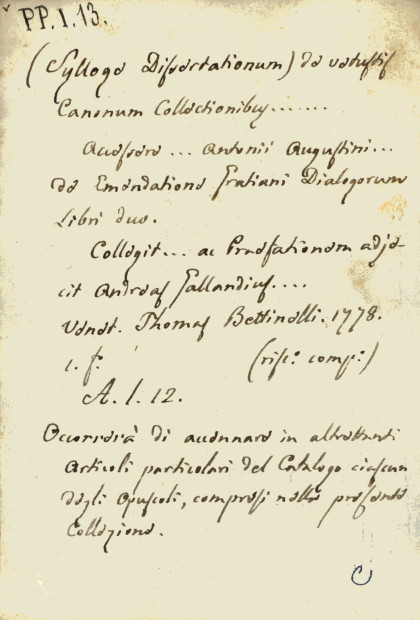 PP. I. 13.
(Sylloge Dissertationum) de vetustis
Canonum Collectionibus.......
Accessere ... Antonii Augustini...
de Emendatione Gratiani Dialogorum
Libri duo.
Collegit... ac Praefationem adje-
cit Andreas Gallandius....
Venet. Thomas Bettinelli. 1778.
i. f. (risc.º comp.º)
A. l. 12.
Occorrerà di accennare in altrettanti
articoli particolari del Catalogo ciascun
degli opuscoli, compresi nella presente
Collezione.